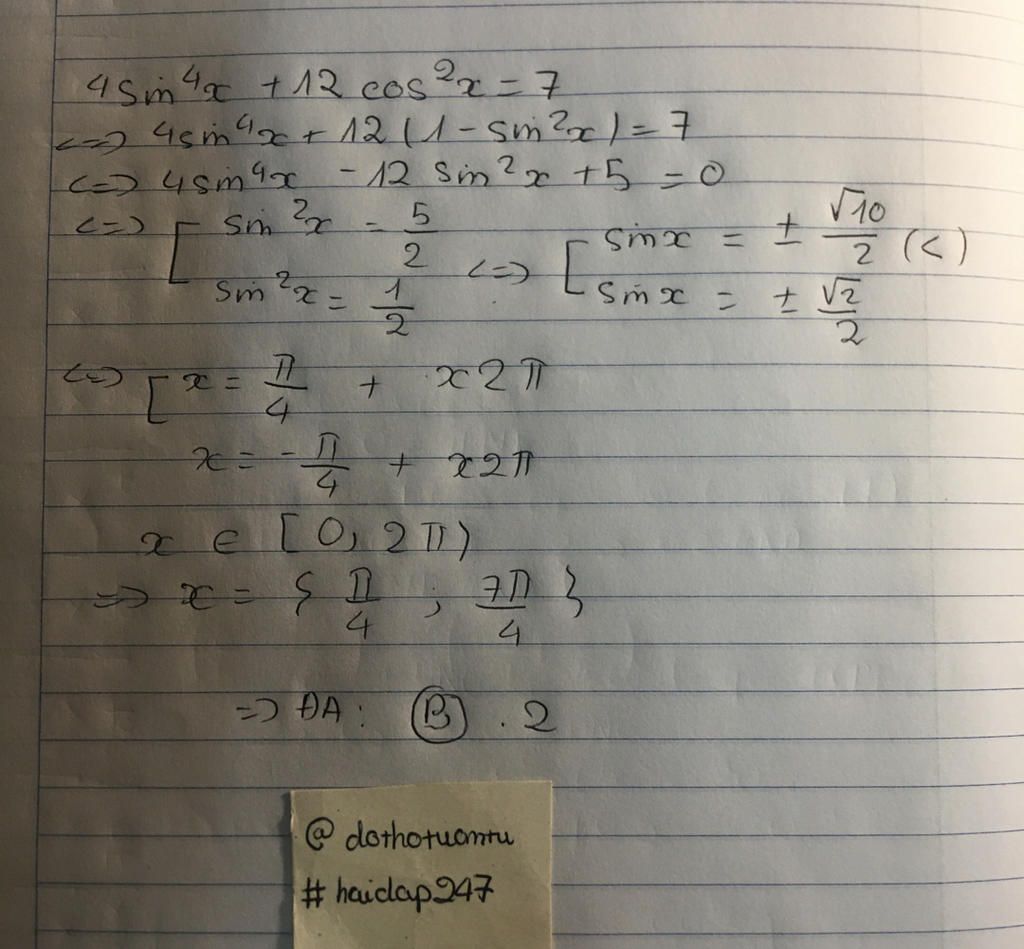 4sin⁴x + 12 cos²x = 7
<=> 4sin⁴x + 12 (1 - sin²x) = 7
<=> 4sin⁴x - 12 sin²x + 5 = 0
<=> [ sin²x = 5/2 <=> [ sinx = ± √10/2 (<)
sin²x = 1/2 sinx = ± √2/2
<=> [ x = π/4 + x2π
x = -π/4 + x2π
x ∈ [0, 2π)
=> x = { π/4 ; 7π/4 }
=> ĐA : (B) . 2
@ dothotuantu
# hoidap247